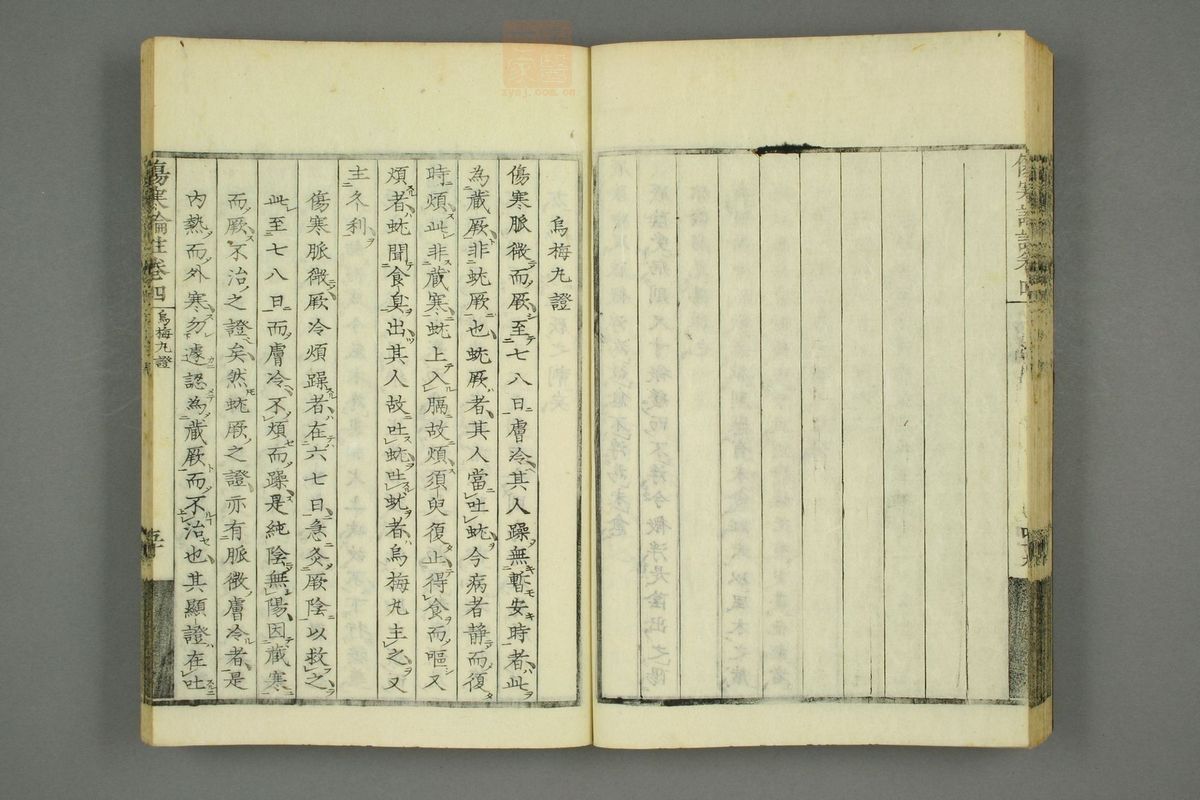 烏梅丸證
傷寒脈微而厥至七八日膚冷其人躁無暫安時者此
為藏厥非蚘厥也蚘厥者其人當吐蚘今病者静而復
時煩此非藏寒蚘上入膈故煩須臾復止得食而嘔又
煩者蚘聞食臭出其人故吐蚘吐蚘者烏梅丸主之又
主久利
傷寒脈微厥冷煩躁者在六七日急灸厥陰以救之
此至七八日而膚冷不煩而躁是純陰無陽因藏寒
而厥不治之證矣然蚘厥之證亦有脈微膚冷者是
內熱而外寒勿遽認為藏厥而不治也其顯證在吐
傷寒論註卷四
烏梅丸證
zysj.com.cn